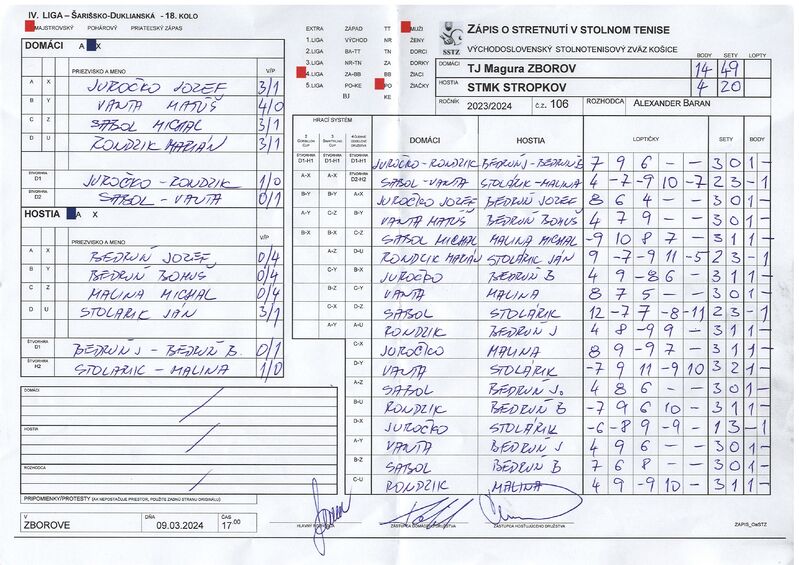 IV. LIGA – ŠARIŠSKO-DUKLIANSKÁ - 18. KOLO
MAJSTROVSKÝ POHÁROVÝ PRIATEĽSKÝ ZÁPAS
DOMÁCI A X
PRIEZVISKO A MENO V/P
A X JUROČKO JOZEF 3/1
B Y VANTA MATÚŠ 4/0
C Z SABOL MICHAL 3/1
D U RONDZIK MARIÁN 3/1
ŠTVORHRA D1 JUROČKO - RONDZIK 1/0
ŠTVORHRA D2 SABOL - VANTA 0/1
HOSTIA A X
PRIEZVISKO A MENO V/P
A X BEDRUŇ JOZEF 0/4
B Y BEDRUŇ BOHUŠ 0/4
C Z MALINA MICHAL 0/4
D U STOLÁRIK JÁN 3/1
ŠTVORHRA D1 BEDRUŇ J - BEDRUŇ B. 0/1
ŠTVORHRA H2 STOLÁRIK - MALINA 1/0
DOMÁCI
HOSTIA
ROZHODCA
PRIPOMIENKY/PROTESTY (AK NEPOSTAČUJE PRIESTOR, POUŽITE ZADNÚ STRANU ORIGINÁLU)
V ZBOROVE DŇA 09.03.2024 ČAS 17.00
EXTRA ZÁPAD TT MUŽI
1.LIGA VÝCHOD NR ŽENY
2.LIGA BA-TT TN DORCI
3.LIGA NR-TN ZA DORKY
4.LIGA ZA-BB BB ŽIACI
5.LIGA PO-KE PO ŽIAČKY
BJ KE
SSTZ
ZÁPIS O STRETNUTÍ V STOLNOM TENISE
VÝCHODOSLOVENSKÝ STOLNOTENISOVÝ ZVÄZ KOŠICE
BODY SETY LOPTY
DOMÁCI TJ Magura ZBOROV 14 49
HOSTIA STMK STROPKOV 4 20
ROČNÍK 2023/2024 č.z. 106 ROZHODCA ALEXANDER BARAN
HRACÍ SYSTÉM
DOMÁCI HOSTIA LOPTIČKY SETY BODY
ŠTVORHRA D1-H1 ŠTVORHRA D1-H1 ŠTVORHRA D1-H1 JUROČKO - RONDZIK BEDRUŇ J - BEDRUŇ B 7 9 6 - - 3 0 1 -
A-X A-X ŠTVORHRA D2-H2 SABOL - VANTA STOLÁRIK - MALINA 4 -7 -9 10 -7 2 3 - 1
B-Y B-Y A-X JUROČKO JOZEF BEDRUŇ JOZEF 8 6 4 - - 3 0 1 -
A-Y C-Z B-Y VANTA MATÚŠ BEDRUŇ BOHUŠ 4 7 9 - - 3 0 1 -
B-X B-X C-Z SABOL MICHAL MALINA MICHAL -9 10 8 7 - 3 1 1 -
A-Z D-U RONDZIK MARIÁN STOLÁRIK JÁN 9 -7 -9 11 -5 2 3 - 1
C-Y B-X JUROČKO BEDRUŇ B 4 9 -8 6 - 3 1 1 -
B-Z C-Y VANTA MALINA 8 7 5 - - 3 0 1 -
C-X D-Z SABOL STOLÁRIK 12 -7 7 -8 -11 2 3 - 1
A-Y A-U RONDZIK BEDRUŇ J 4 8 -9 9 - 3 1 1 -
C-X JUROČKO MALINA 8 9 -9 7 - 3 1 1 -
D-Y VANTA STOLÁRIK -7 9 11 -9 10 3 2 1 -
A-Z SABOL BEDRUŇ J. 4 8 6 - - 3 0 1 -
B-U RONDZIK BEDRUŇ B -7 9 6 10 - 3 1 1 -
D-X JUROČKO STOLÁRIK -6 -8 9 -9 - 1 3 - 1
A-Y VANTA BEDRUŇ J 4 9 6 - - 3 0 1 -
B-Z SABOL BEDRUŇ B 7 6 8 - - 3 0 1 -
C-U RONDZIK MALINA 4 9 -9 10 - 3 1 1 -
HLAVNÝ ROZHODCA ZÁSTUPCA DOMÁCEHO DRUŽSTVA ZÁSTUPCA HOSŤUJÚCEHO DRUŽSTVA
ZAPIS_OeSTZ